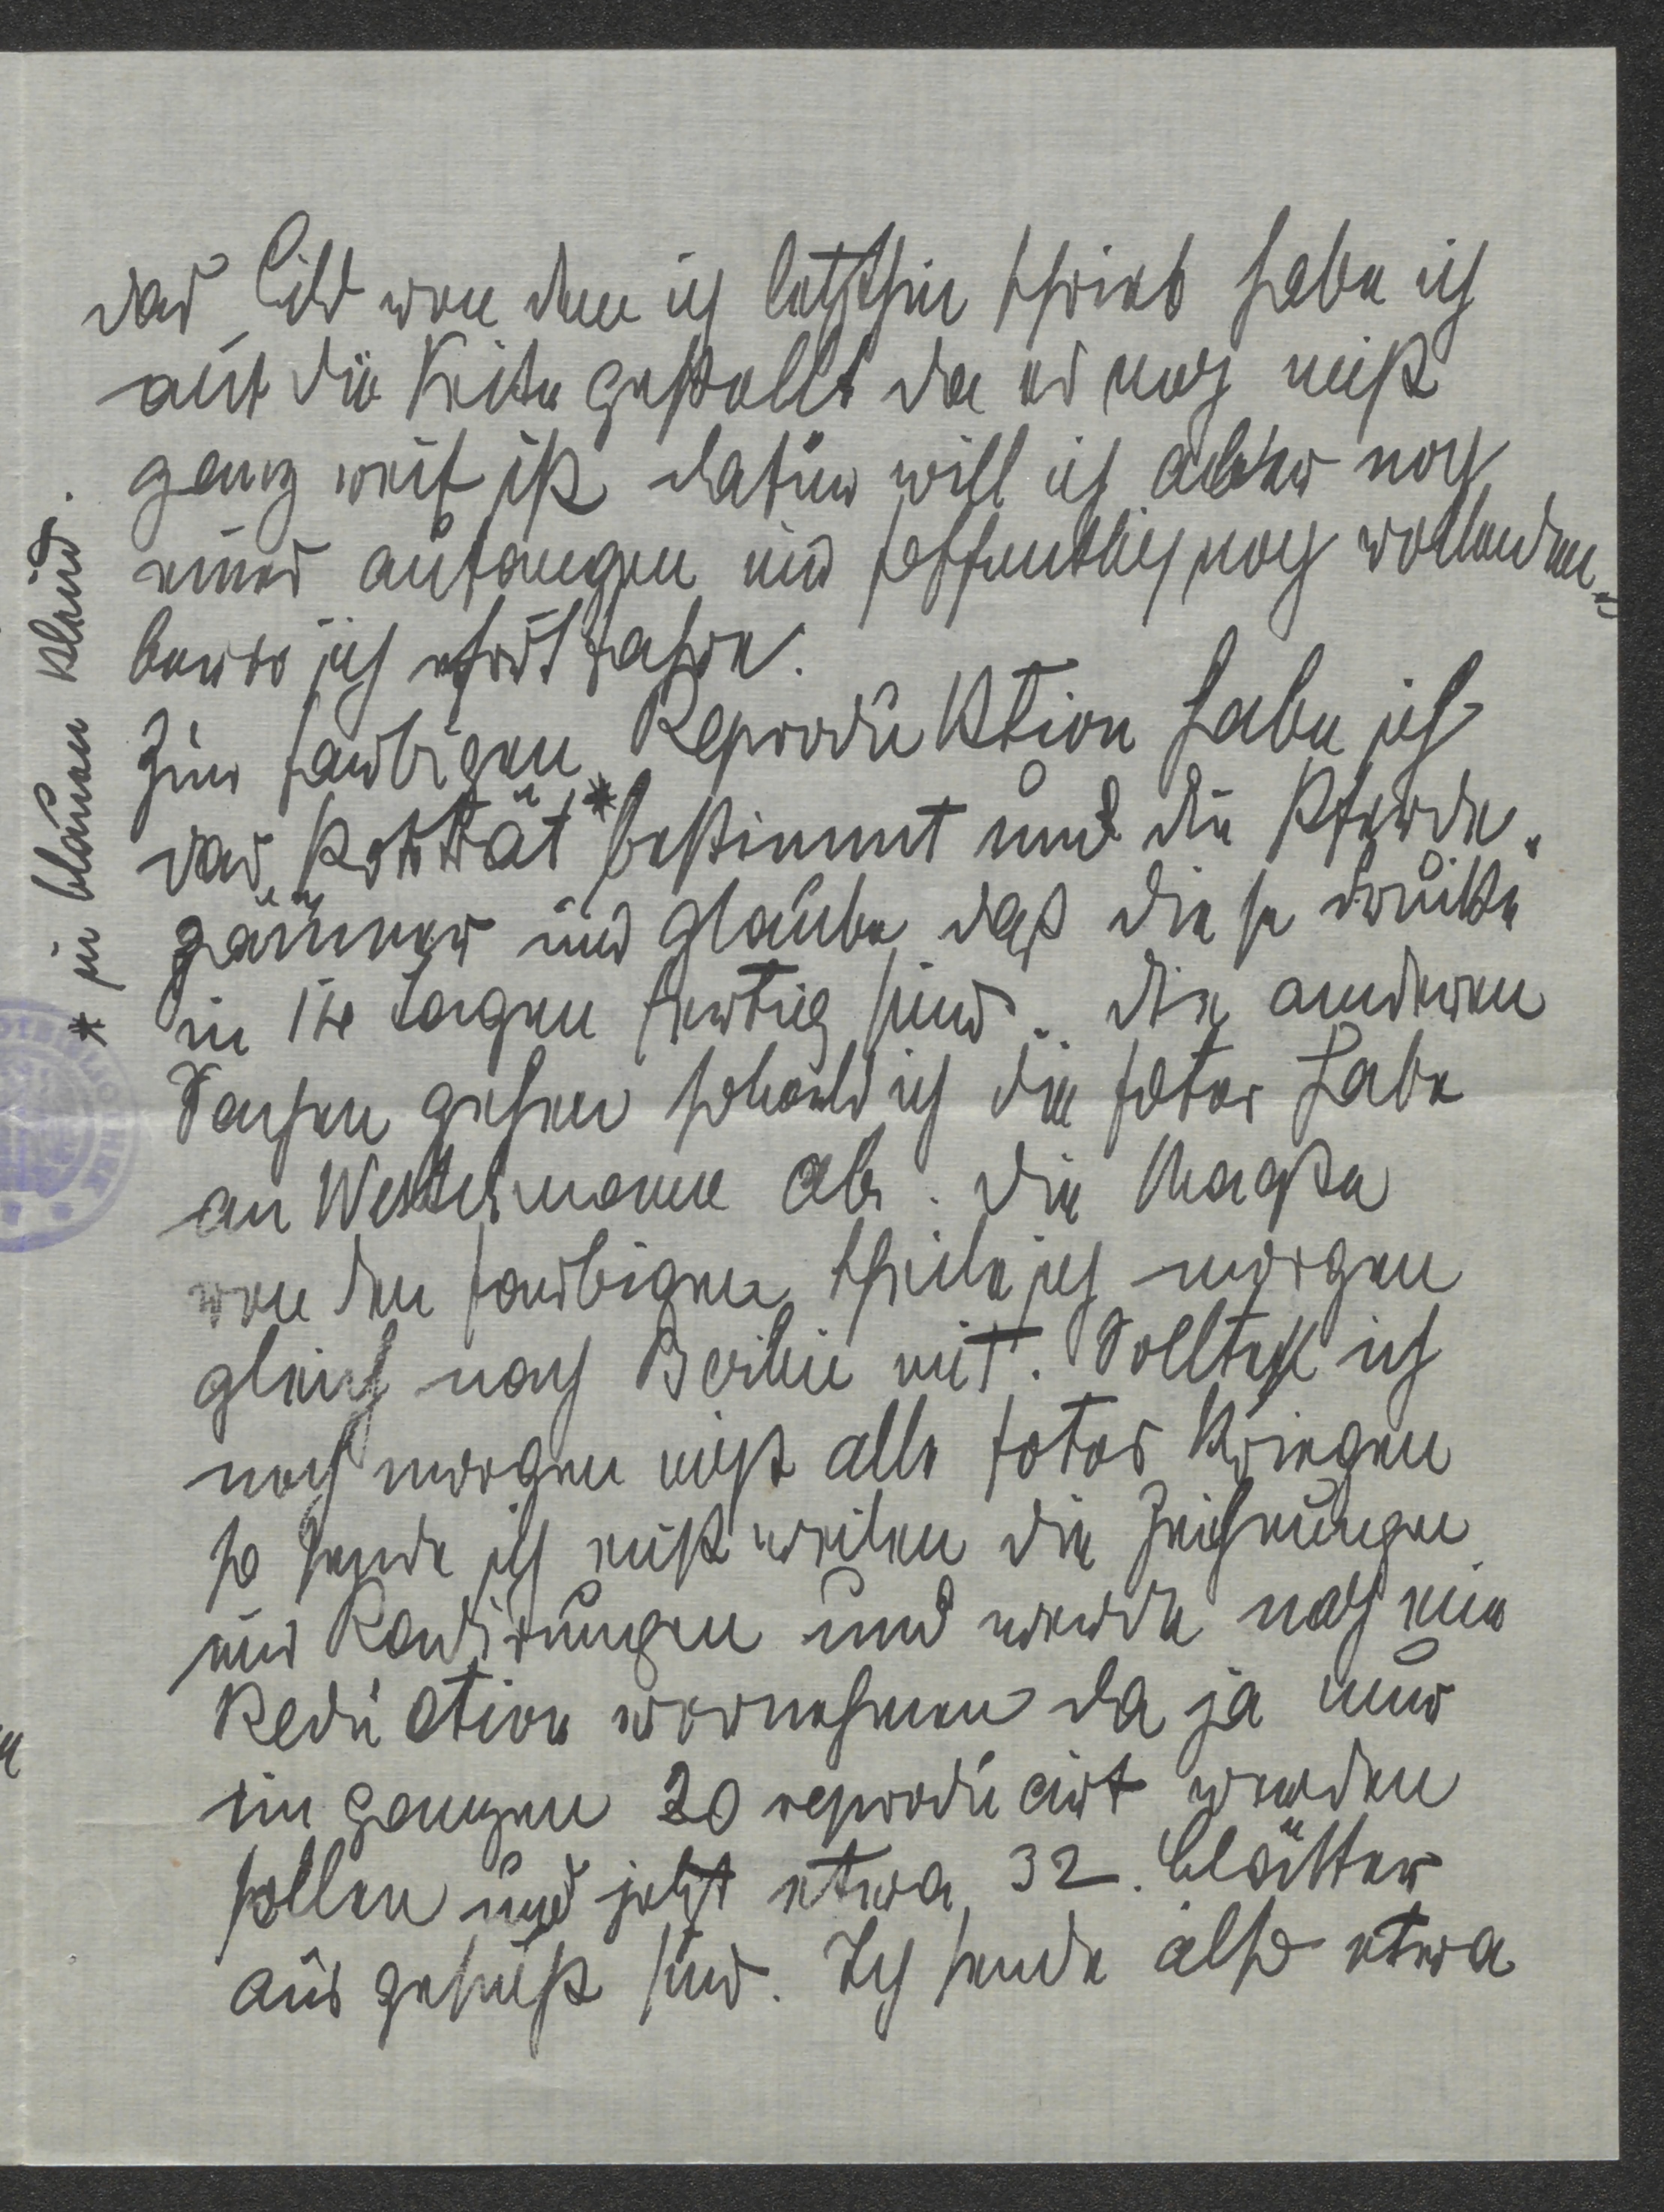 das Bild von dem ich letzthin schrieb habe ich
auf die Seite gestellt da es noch nicht
ganz reif ist dafür will ich aber noch
eines anfangen und hoffentlich noch vollenden
bevor ich fortfahre.
Zur farbigen Reproduktion habe ich
das Porträt * bestimmt und die Pferde-
gänger und glaube daß diese Drucke
in 14 Tagen fertig sind. Die anderen
Sachen gehen sobald ich die Fotos habe
an Westermann ab. Die Maaße
von den farbigen theile ich morgen
gleich nach Berlin mit. Sollte ich
noch morgen nicht alle Fotos kriegen
so sende ich einstweilen die Zeichnungen
und Radirungen und werde noch eine
Reduction vornehmen da ja nur
im ganzen 20 reproducirt werden
sollen und jetzt etwa 32 Blätter
ausgesucht sind. Ich sende also etwa
* im blauen Kleid.